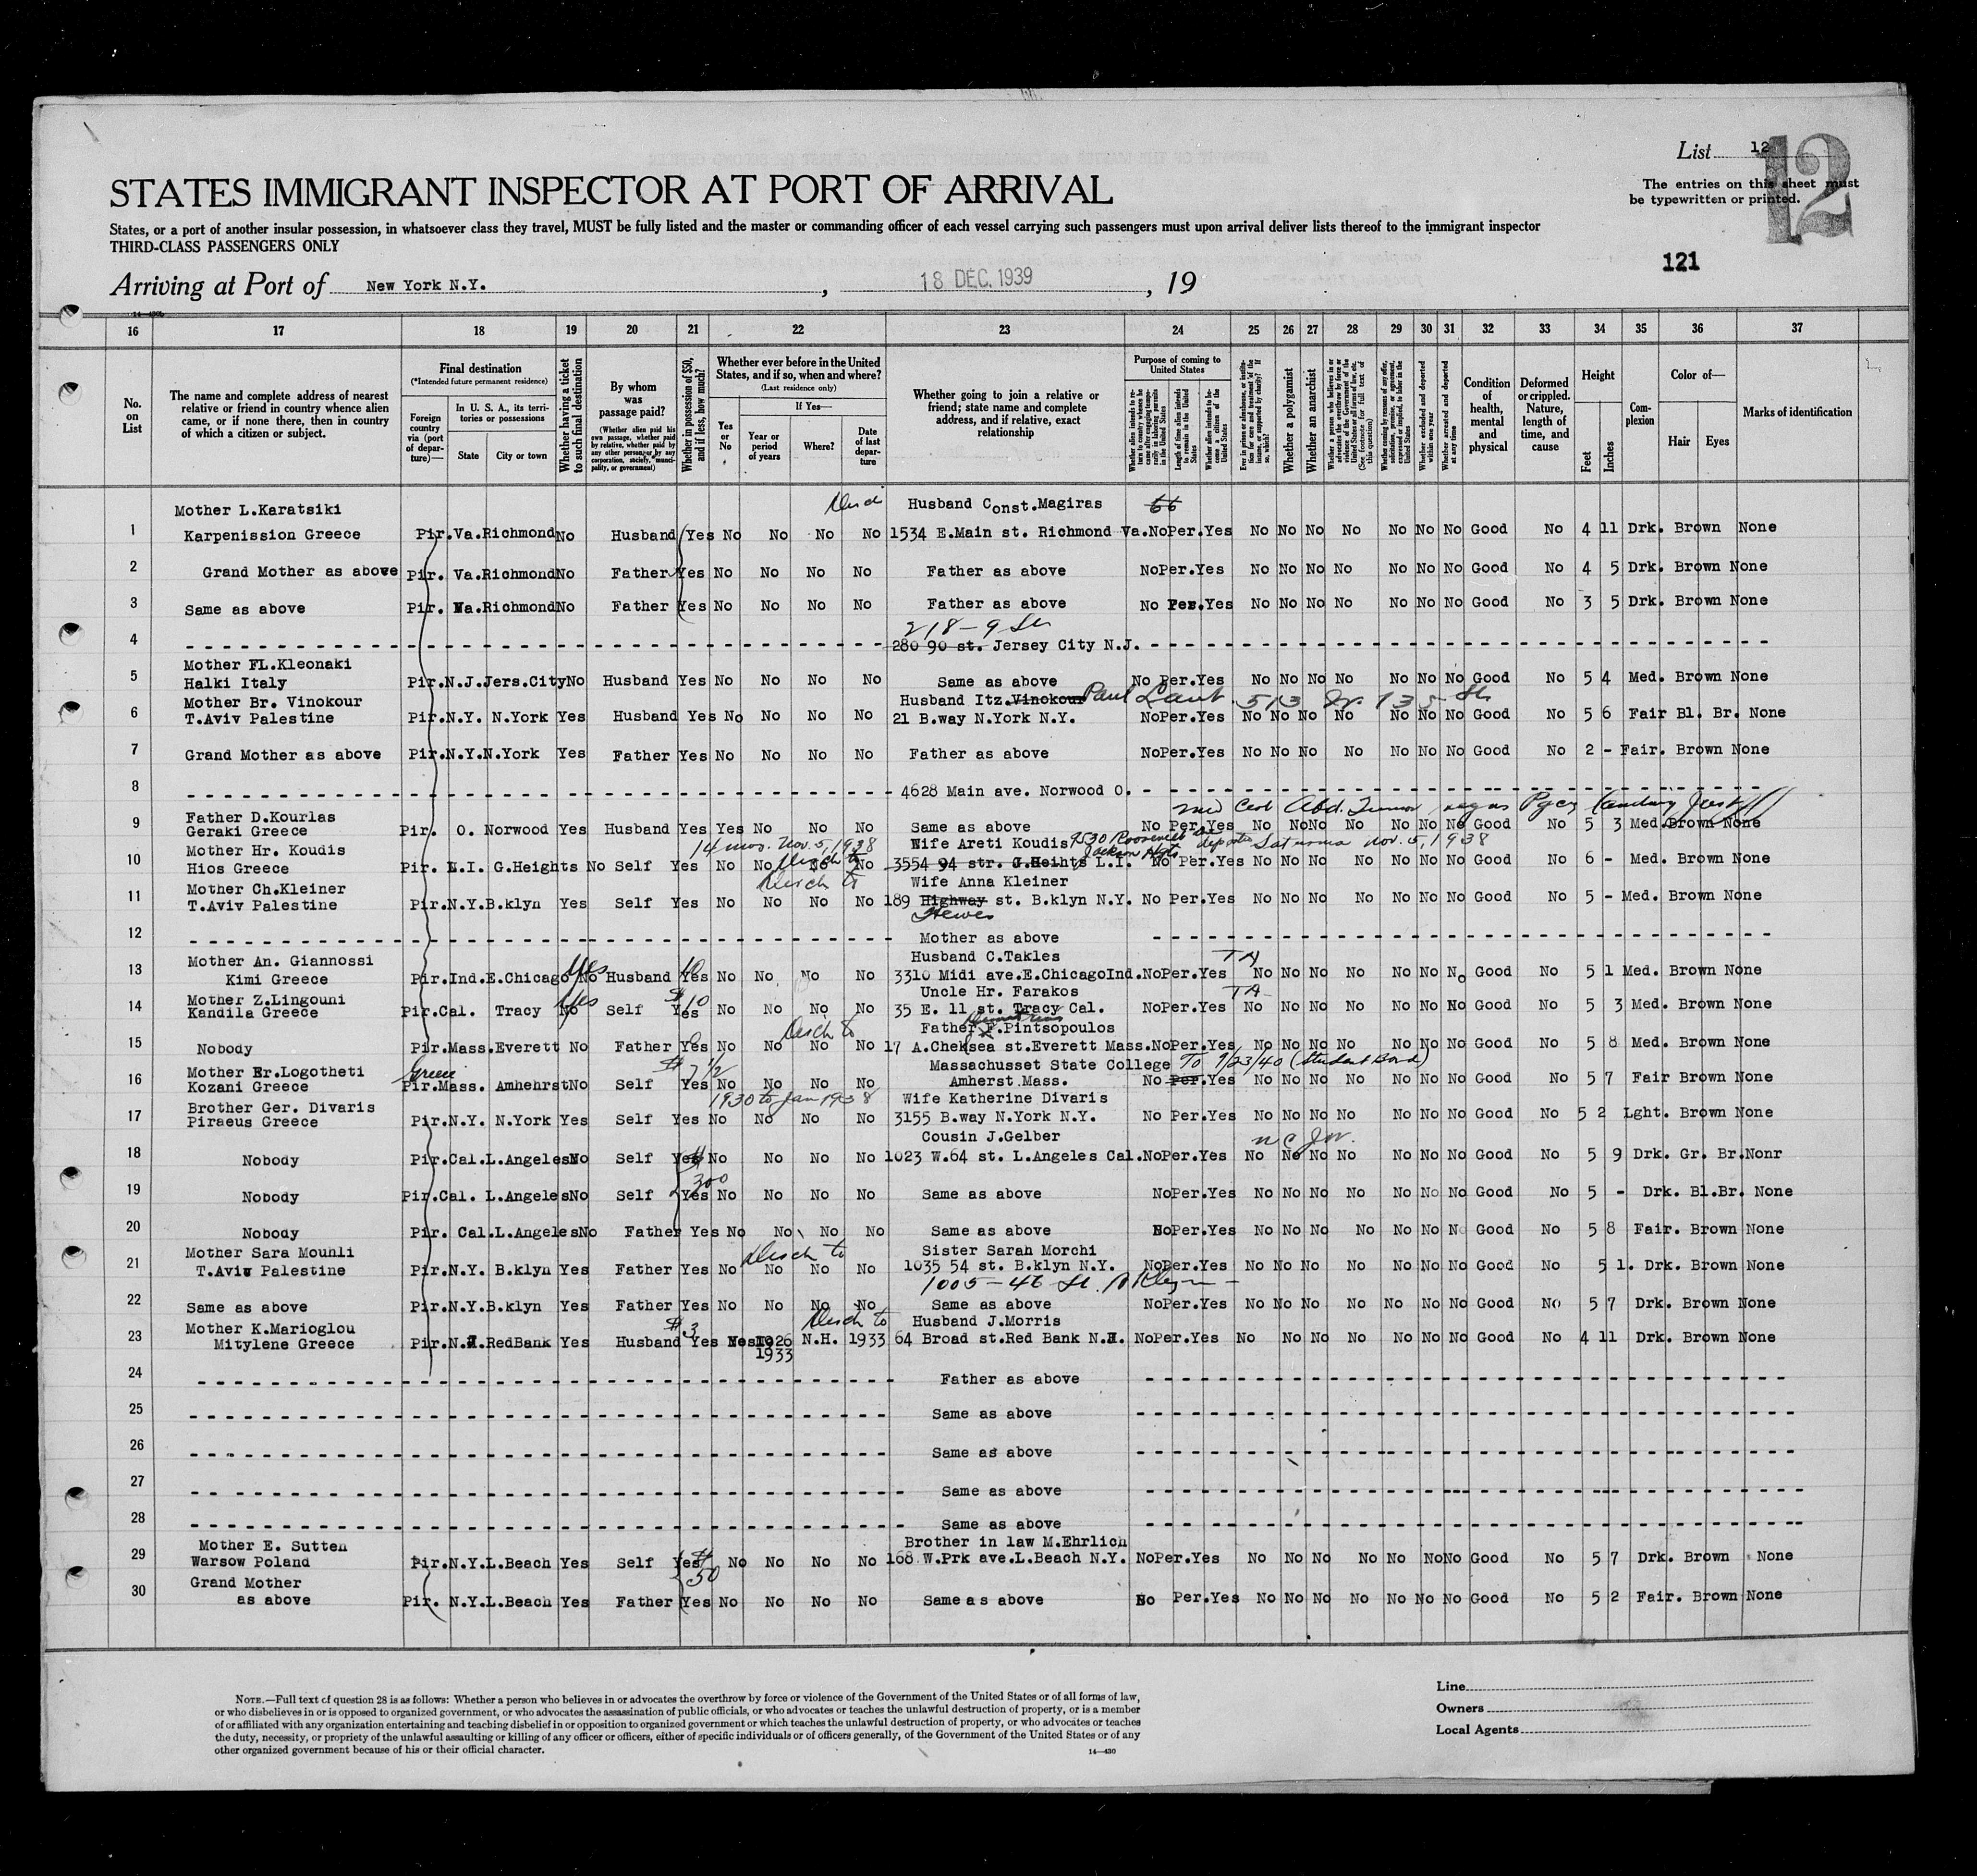 List 12
12
The entries on this sheet must
be typewritten or printed.
STATES IMMIGRANT INSPECTOR AT PORT OF ARRIVAL
States, or a port of another insular possession, in whatsoever class they travel, MUST be fully listed and the master or commanding officer of each vessel carrying such passengers must upon arrival deliver lists thereof to the immigrant inspector
THIRD-CLASS PASSENGERS ONLY
121
Arriving at Port of New York N.Y. , 18 DEC. 1939 , 19
16 17 18 19 20 21 22 23 24 25 26 27 28 29 30 31 32 33 34 35 36 37
No. on List
The name and complete address of nearest relative or friend in country whence alien came, or if none there, then in country of which a citizen or subject.
Final destination
(*Intended future permanent residence)
Foreign country via (port of departure)—
In U. S. A., its territories or possessions
State City or town
Whether having a ticket to such final destination
By whom was passage paid?
(Whether alien paid his own passage, whether paid by relative, whether paid by any other person, or by any corporation, society, municipality, or government)
Whether in possession of $50, and if less, how much?
Whether ever before in the United States, and if so, when and where?
(Last residence only)
Yes or No
If Yes—
Year or period of years
Where?
Date of last departure
Whether going to join a relative or friend; state name and complete address, and if relative, exact relationship
Purpose of coming to United States
Whether a polygamist
Whether an anarchist
Condition of health, mental and physical
Deformed or crippled. Nature, length of time, and cause
Height
Feet Inches
Complexion
Color of—
Hair Eyes
Marks of identification
Mother L.Karatsiki Husband Const.Magiras
1 Karpenission Greece Pir.Va.Richmond No Husband Yes No No No No 1534 E.Main st. Richmond Va. No Per. Yes No No No No No No No Good No 4 11 Drk. Brown None
2 Grand Mother as above Pir. Va.Richmond No Father Yes No No No No Father as above No Per. Yes No No No No No No No Good No 4 5 Drk. Brown None
3 Same as above Pir. Va.Richmond No Father Yes No No No No Father as above No Per. Yes No No No No No No No Good No 3 5 Drk. Brown None
218 - 9 St
4 280 90 st. Jersey City N.J.
Mother FL.Kleonaki
5 Halki Italy Pir.N.J.Jers.City No Husband Yes No No No No Same as above No Per. Yes No No No No No No No Good No 5 4 Med. Brown None
Mother Br. Vinokour Husband Itz.Vinokour Paul Laut 513 W. 135 St
6 T.Aviv Palestine Pir.N.Y. N.York Yes Husband Yes No No No No 21 B.way N.York N.Y. No Per. Yes No No No No No No No Good No 5 6 Fair Bl. Br. None
7 Grand Mother as above Pir.N.Y.N.York Yes Father Yes No No No No Father as above No Per. Yes No No No No No No No Good No 2 - Fair. Brown None
8 4628 Main ave. Norwood O.
Father D.Kourlas
9 Geraki Greece Pir. O. Norwood Yes Husband Yes Yes No No No Same as above No Per. Yes No No No No No No No Good No 5 3 Med. Brown None
Mother Hr. Koudis 14 mos. Nov. 5, 1938 Wife Areti Koudis 9530 Roosevelt Av Jackson Hgts departed Saturnia Nov. 5, 1938
10 Hios Greece Pir. L.I. G.Heights No Self Yes No No No No 3554 94 str. G.Heihts L.I. No Per. Yes No No No No No No No Good No 6 - Med. Brown None
Mother Ch.Kleiner Wife Anna Kleiner
11 T.Aviv Palestine Pir.N.Y.B.klyn Yes Self Yes No No No No 189 Highway st. B.klyn N.Y. No Per. Yes No No No No No No No Good No 5 - Med. Brown None
Hewes
12 Mother as above
Mother An. Giannossi Husband C.Takles
13 Kimi Greece Pir.Ind.E.Chicago No Yes Husband Yes No No No No 3310 Midi ave.E.Chicago Ind. No Per. Yes No No No No No No No Good No 5 1 Med. Brown None
Mother Z.Lingouni $10 Uncle Hr. Farakos
14 Kandila Greece Pir.Cal. Tracy No Yes Self Yes No No No No 35 E. 11 st. Tracy Cal. No Per. Yes No No No No No No No Good No 5 3 Med. Brown None
Father F.Pintsopoulos
15 Nobody Pir.Mass.Everett No Father Yes No No No No 17 A.Chelsea st.Everett Mass. No Per. Yes No No No No No No No Good No 5 8 Med. Brown None
Mother Er.Logotheti Greece Massachusset State College To 9/23/40 (Student Bond)
16 Kozani Greece Pir.Mass. Amhehrst No Self Yes No No No No Amherst Mass. No Per. Yes No No No No No No No Good No 5 7 Fair Brown None
Brother Ger. Divaris 1930 to Jan 1938 Wife Katherine Divaris
17 Piraeus Greece Pir.N.Y. N.York Yes Self Yes No No No No 3155 B.way N.York N.Y. No Per. Yes No No No No No No No Good No 5 2 Lght. Brown None
Cousin J.Gelber
18 Nobody Pir.Cal.L.Angeles No Self Yes No No No No 1023 W.64 st. L.Angeles Cal. No Per. Yes No No No No No No No Good No 5 9 Drk. Gr. Br. Nonr
$300
19 Nobody Pir.Cal. L.Angeles No Self Yes No No No No Same as above No Per. Yes No No No No No No No Good No 5 - Drk. Bl.Br. None
20 Nobody Pir. Cal.L.Angeles No Father Yes No No No No Same as above No Per. Yes No No No No No No No Good No 5 8 Fair. Brown None
Mother Sara Mounli Sister Sarah Morchi
21 T.Aviv Palestine Pir.N.Y. B.klyn Yes Father Yes No No No No 1035 54 st. B.klyn N.Y. No Per. Yes No No No No No No No Good No 5 1. Drk. Brown None
1005 - 46 St. B Klyn
22 Same as above Pir.N.Y.B.klyn Yes Father Yes No No No No Same as above No Per. Yes No No No No No No No Good No 5 7 Drk. Brown None
Mother K.Marioglou $3 Husband J.Morris
23 Mitylene Greece Pir.N.J.RedBank Yes Husband Yes Yes 1926 1933 N.H. 1933 64 Broad st.Red Bank N.J. No Per. Yes No No No No No No No Good No 4 11 Drk. Brown None
24 Father as above
25 Same as above
26 Same as above
27 Same as above
28 Same as above
Mother E. Sutten Brother in law M.Ehrlich
29 Warsow Poland Pir.N.Y.L.Beach Yes Self Yes No No No No 168 W.Prk ave.L.Beach N.Y. No Per. Yes No No No No No No No Good No 5 7 Drk. Brown None
Grand Mother $50
30 as above Pir. N.Y.L.Beach Yes Father Yes No No No No Same as above No Per. Yes No No No No No No No Good No 5 2 Fair. Brown None
NOTE.—Full text of question 28 is as follows: Whether a person who believes in or advocates the overthrow by force or violence of the Government of the United States or of all forms of law,
or who disbelieves in or is opposed to organized government, or who advocates the assassination of public officials, or who advocates or teaches the unlawful destruction of property, or is a member
of or affiliated with any organization entertaining and teaching disbelief in or opposition to organized government or which teaches the unlawful destruction of property, or who advocates or teaches
the duty, necessity, or propriety of the unlawful assaulting or killing of any officer or officers, either of specific individuals or of officers generally, of the Government of the United States or of any
other organized government because of his or their official character.
14—430
Line
Owners
Local Agents